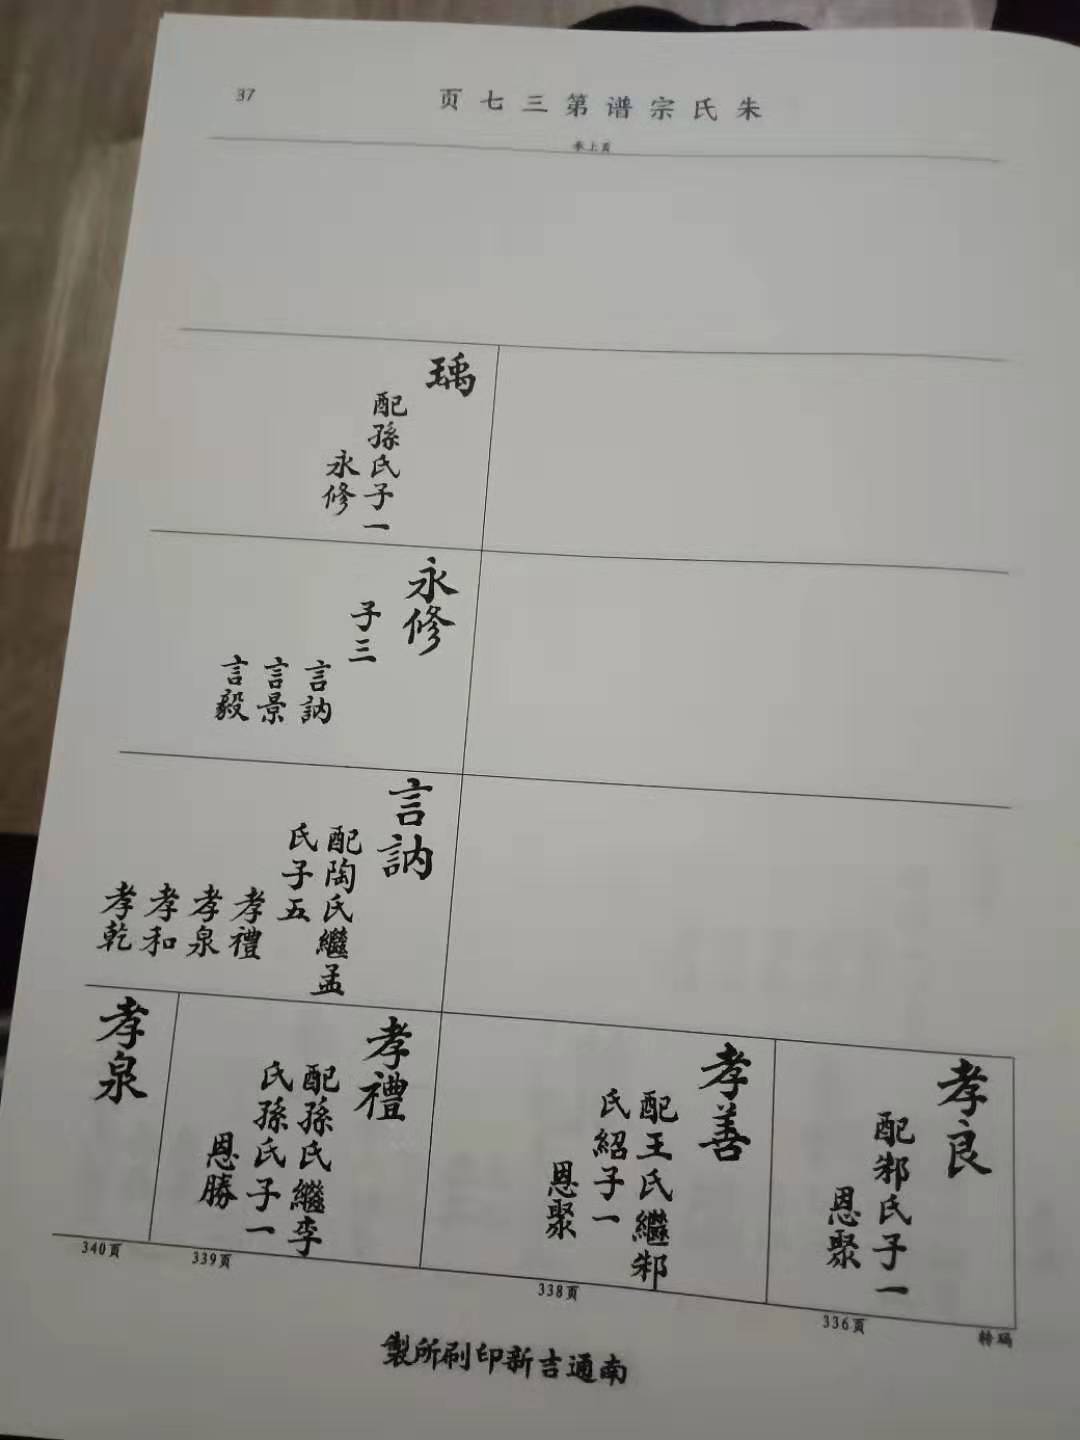 37
朱氏宗谱第三七页
承上页
瑀
配孫氏子一
永修
永修
子三
言訥
言景
言毅
言訥
配陶氏繼孟
氏子五
孝禮
孝泉
孝和
孝乾
孝良
配邾氏子一
恩聚
孝善
配王氏繼邾
氏紹子一
恩聚
孝禮
配孫氏繼李
氏孫氏子一
恩勝
孝泉
336页
338页
339页
340页
南通吉新印刷所製